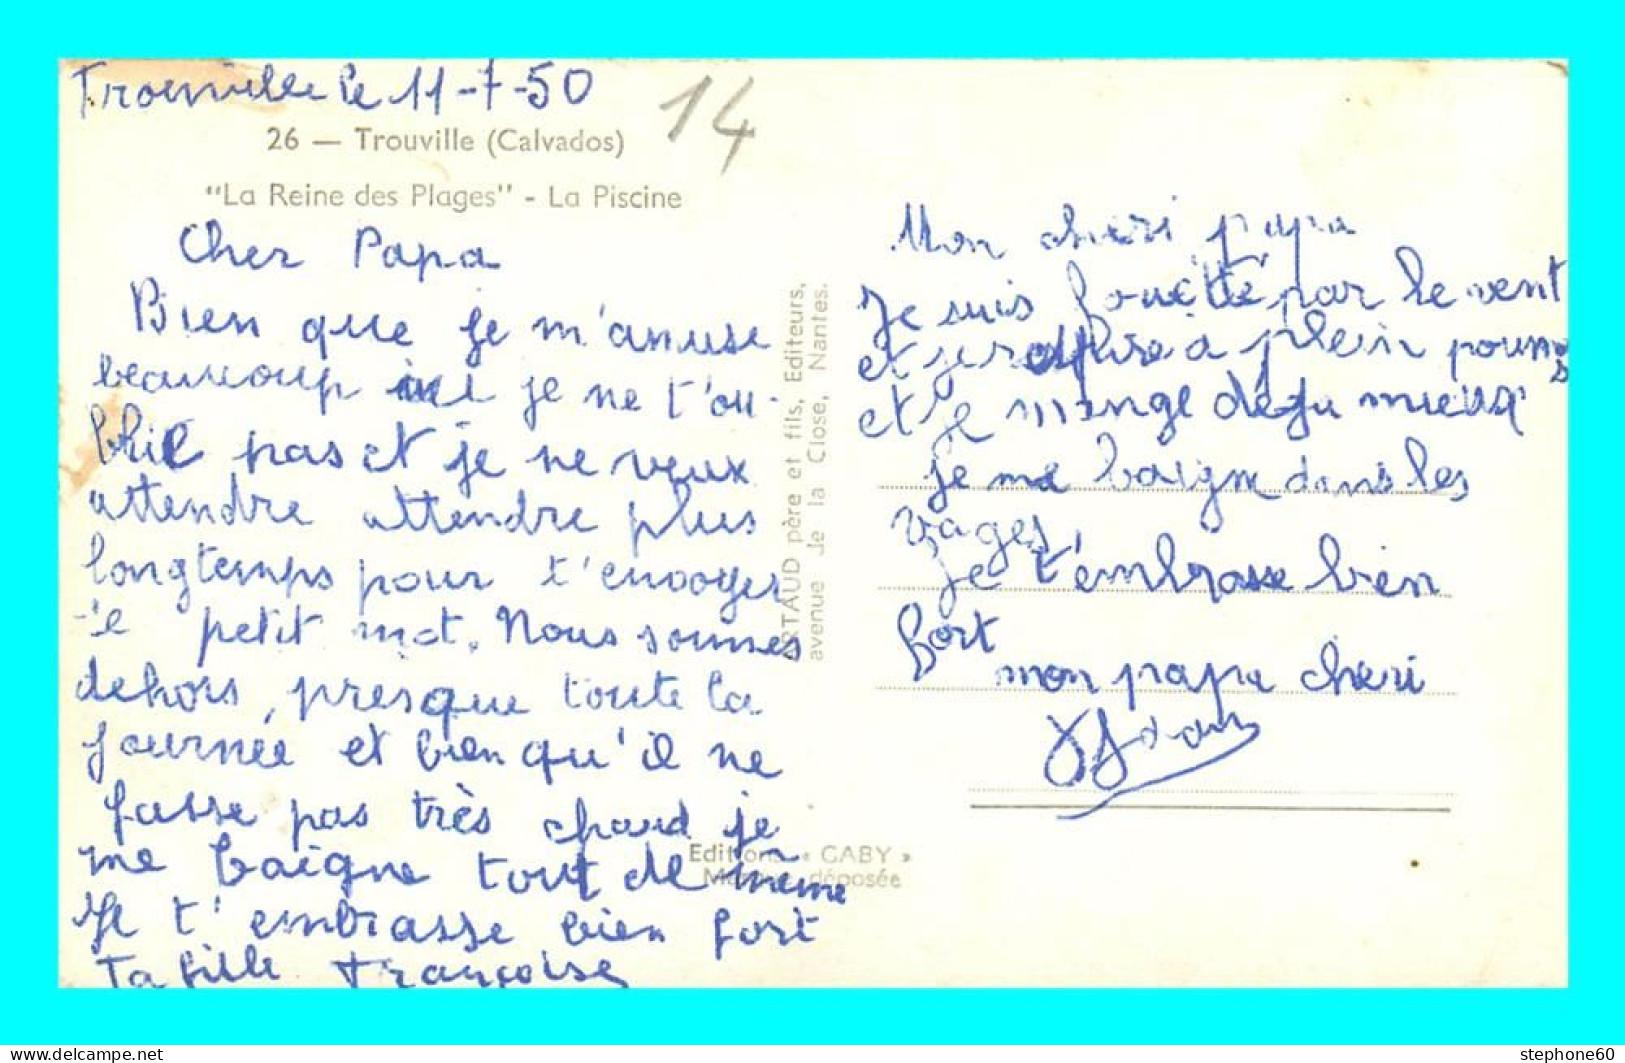 Trouville le 11-7-50
14
26 — Trouville (Calvados)
"La Reine des Plages" - La Piscine
Cher Papa
Bien que je m'amuse
beaucoup ici je ne t'ou-
blie pas et je ne veux
attendre attendre plus
longtemps pour t'envoyer
petit mot. Nous sommes
dehors, presque toute la
journée et bien qu'il ne
fasse pas très chaud je
me baigne tout de même
Je t'embrasse bien fort
Ta fille Françoise
ARTAUD père et fils, Editeurs,
avenue de la Close, Nantes.
Editions « GABY »
Marque déposée
Mon cheri papa
Je suis fouetté par le vent
et je a plein poumons
et je mange déja mieux
je me baigne dans les
vages
Je t'embrasse bien
fort
mon papa cheri
stephone60